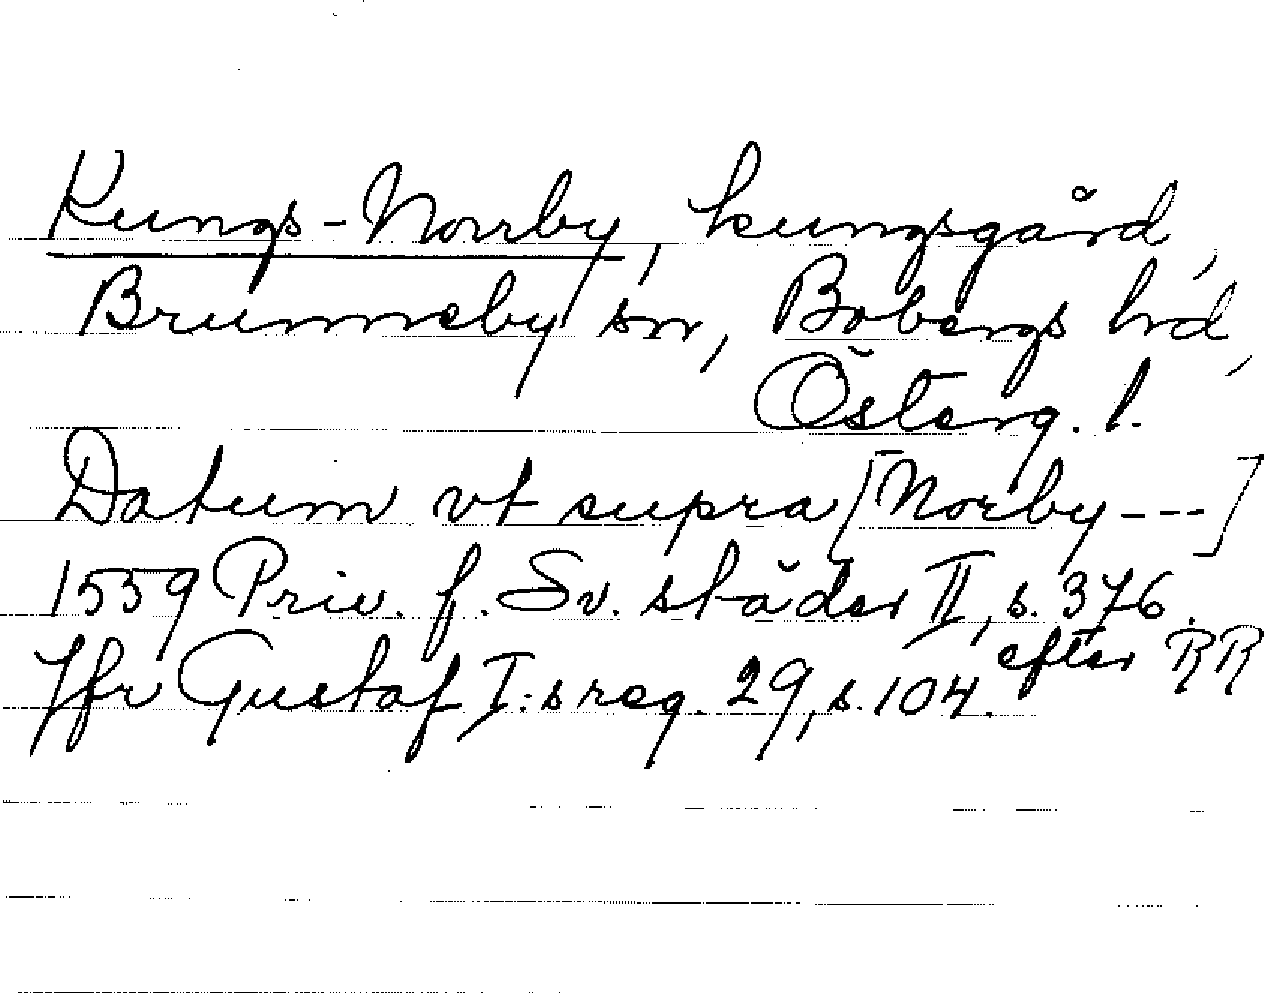 Kungs-Norrby, kungsgård,
Brunneby sn, Bobergs hd,
Österg. l.
Datum vt supra [Norby ---]
1559 Priv. f. Sv. städer II, s. 376.
efter RR
Jfr Gustaf I:s reg. 29, s. 104.